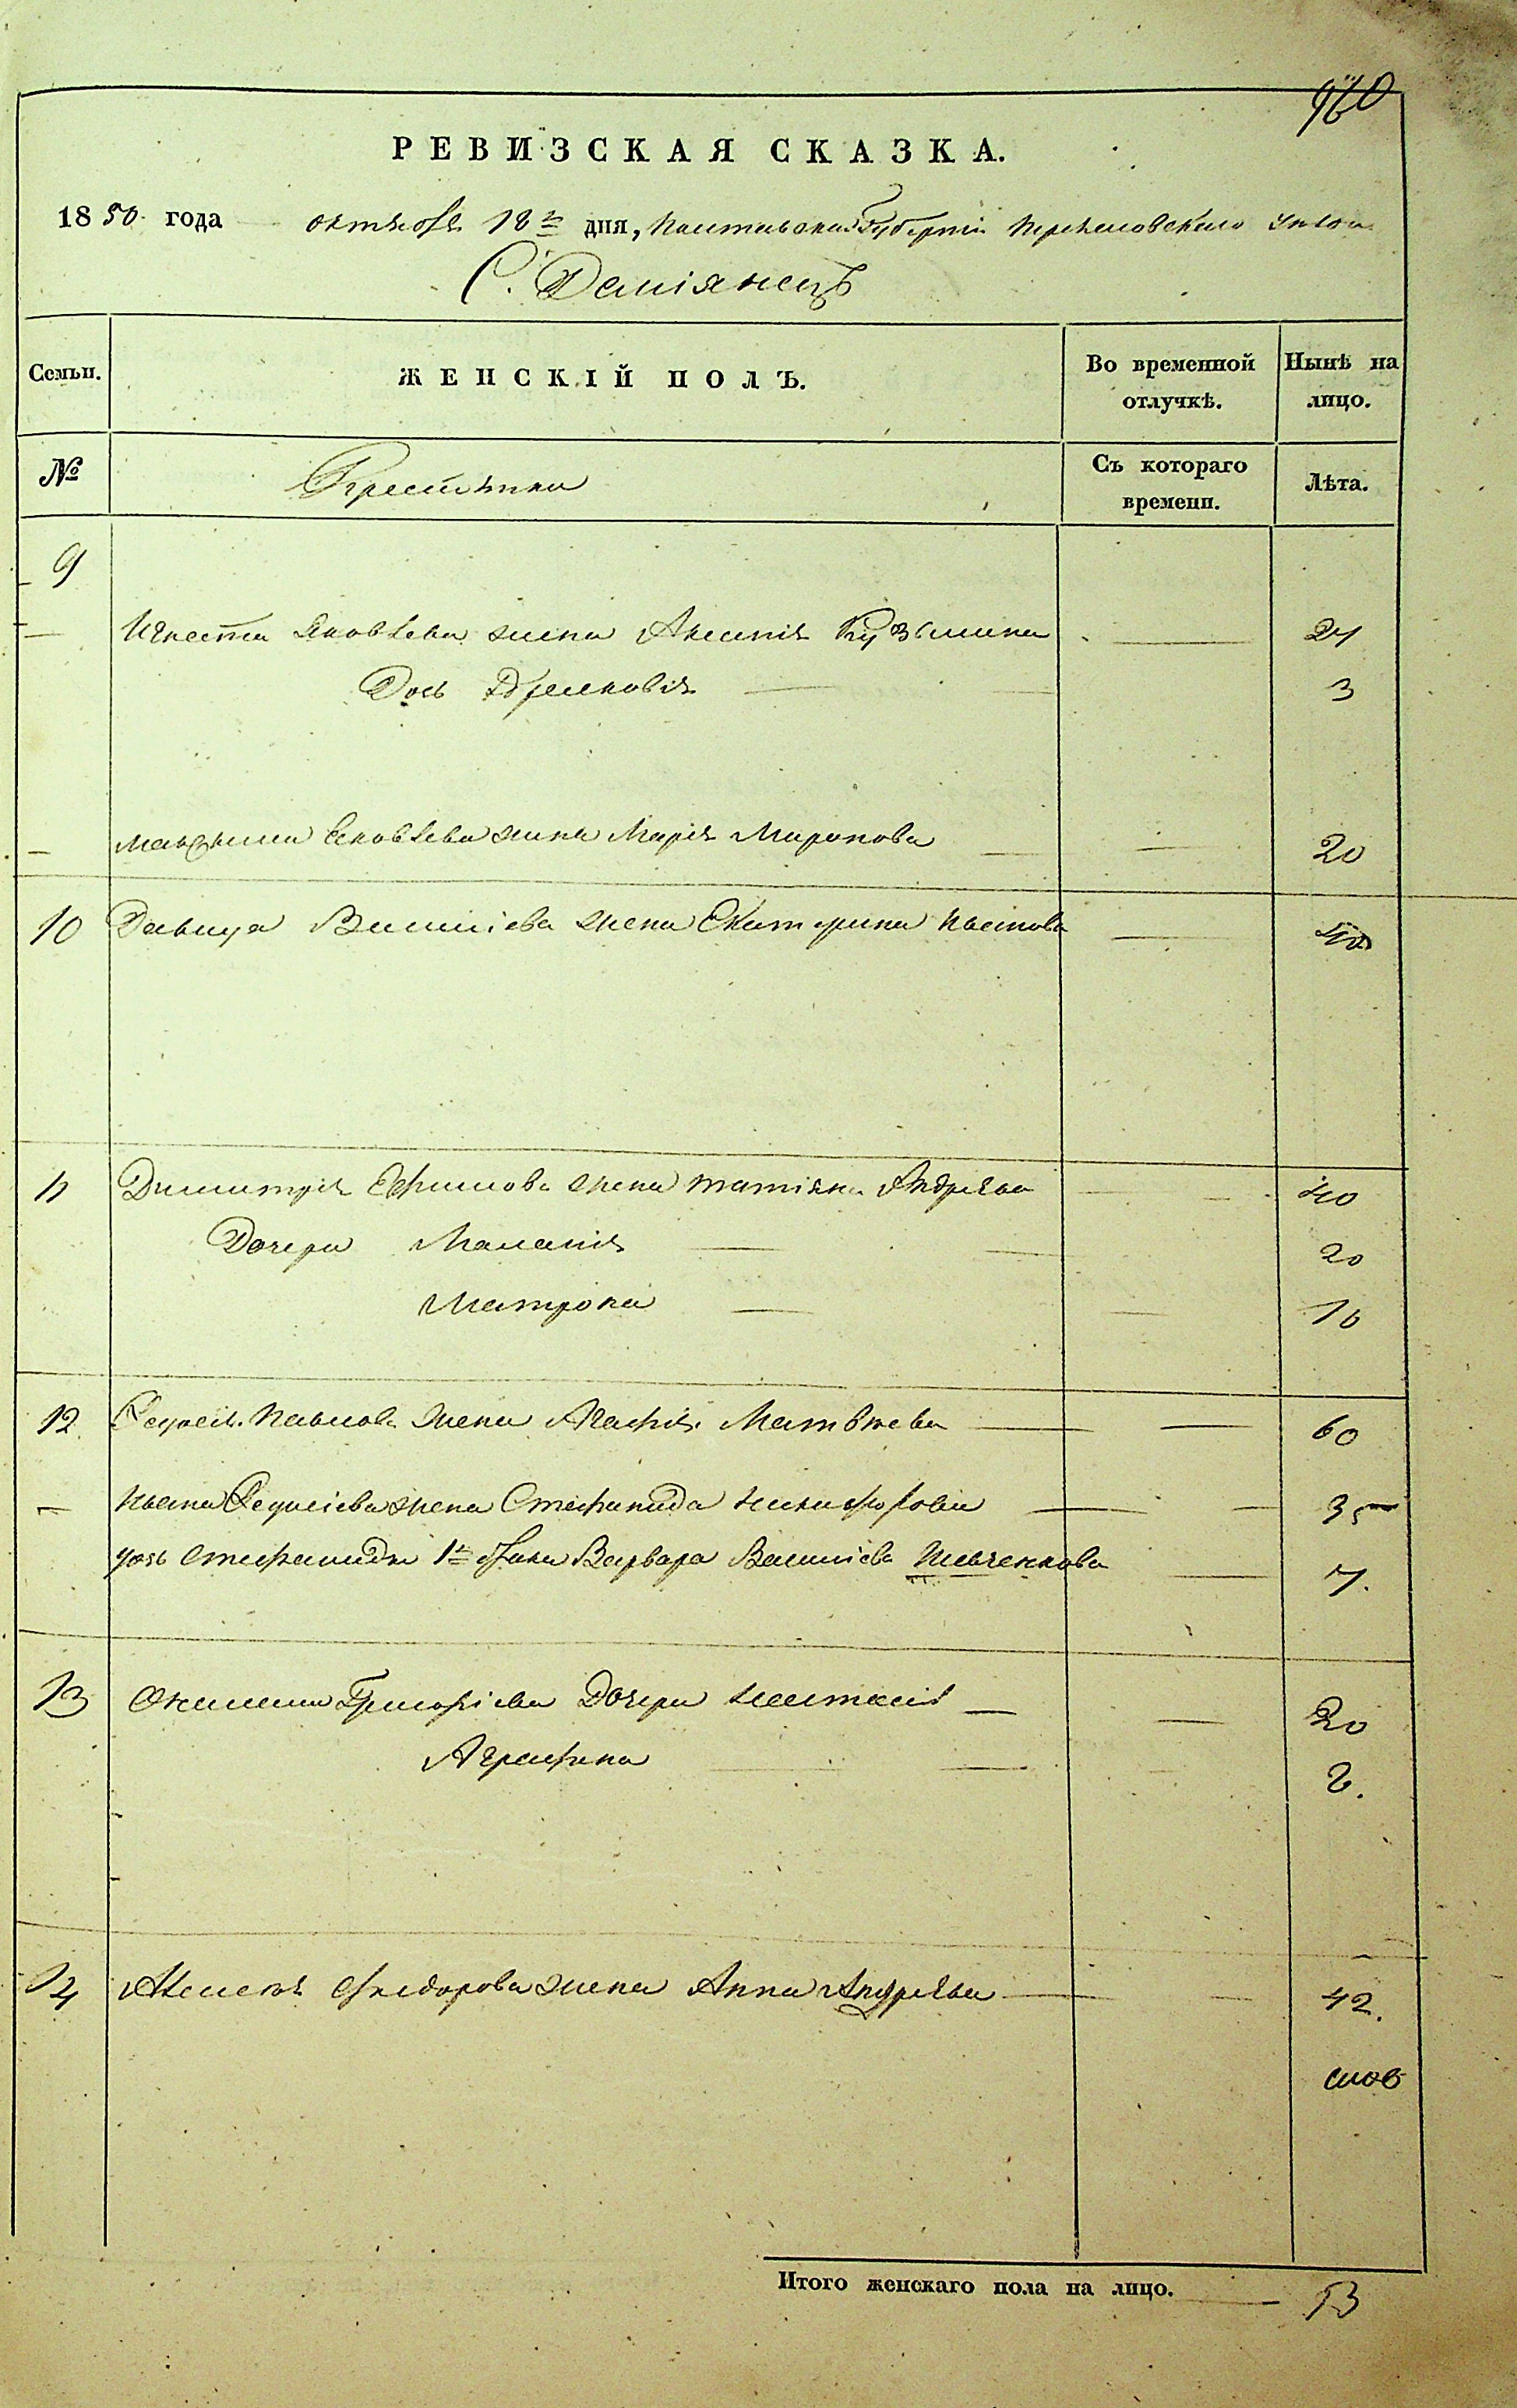 960
РЕВИЗСКАЯ СКАЗКА.
1850 года октября 18 дня, Полтавской Губерніи Переяславского уезда
С. Деміянецъ
Семьи. ЖЕНСКІЙ ПОЛЪ. Во временной отлучкѣ. Нынѣ на лицо.
№ Крестьяне Съ котораго времени. Лѣта.
9
Игната Яковлева жена Аксинія Кузьмина — 24
Дочь — 3
Яковлева жена Марія Миронова — 20
10 Давида Василіева жена Екатерина — 40
11 Димитрія Ефимова жена татіяна Андреева — 40
Дочери Маланія — 20
Матрона — 16
12 Павлова жена Агафія Матвеева — 60
Ивана жена Стефанида никифорова — 35
дочь Стефаниды 1го брака Варвара Василіева Шевченкова — 7.
13 Григоріева Дочери настасія — 20
Аграфена —
14 Алексея Федорова жена Анна Андреева — 42.
Итого женскаго пола на лицо. — 13